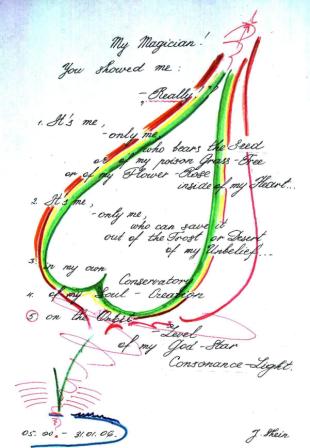 My Magician!
You showed me:
- "Really..."
1. It's me,
- only me,
who bears the Seed
or of my poison Grass-Tree
or of my Flower-Rose
inside of my Heart...
2. It's me,
- only me,
who can save it
out of the Frost or Desert
of my Unbelief...
3. in my own
Conservatory
4. of my Soul-Creation
5 on the Orbit-
-Level
of my God-Star
Consonance-Light.